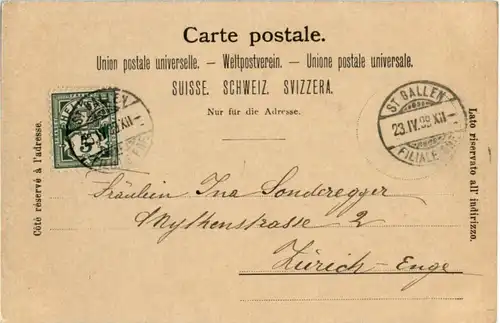 Carte postale.
Union postale universelle. — Weltpostverein. — Unione postale universale.
SUISSE. SCHWEIZ. SVIZZERA.
Nur für die Adresse.
Côté réservé à l'adresse.
Lato riservato all' indirizzo.
ST GALLEN
23.IV.99 XII
FILIALE
5
Fräulein Ina Sonderegger
Mythenstrasse 2
Zürich-Enge